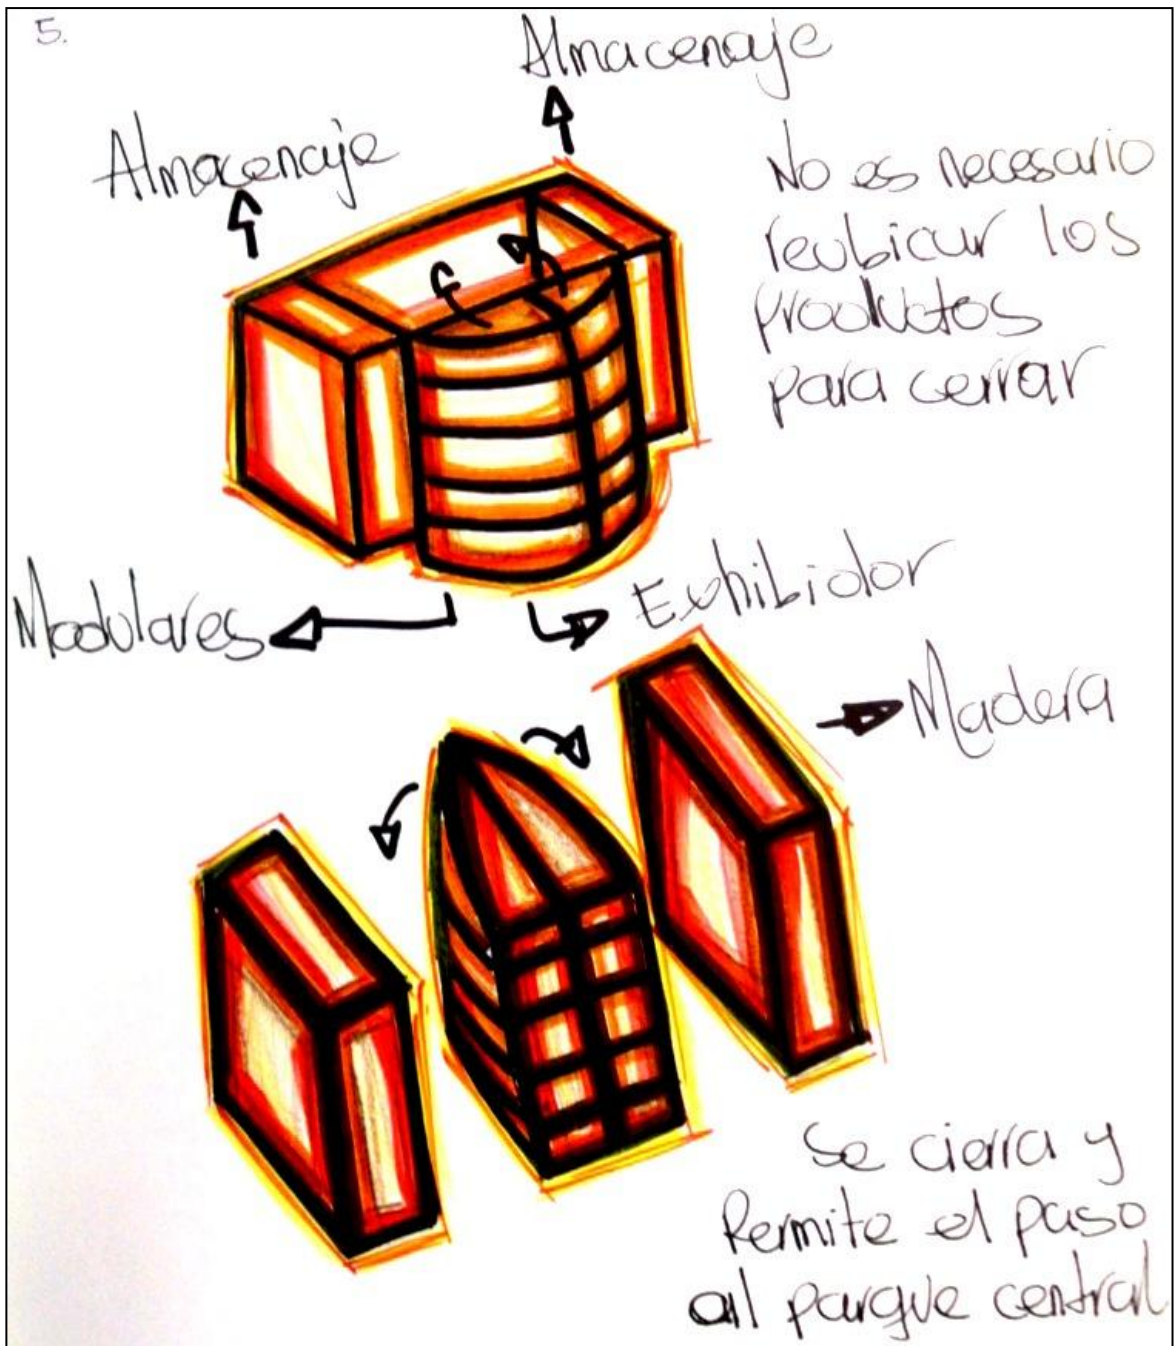 5.
Almacenaje
Almacenaje
No es necesario
reubicar los
productos
para cerrar
Modulares
Exhibidor
Madera
Se cierra y
Permite el paso
al parque central